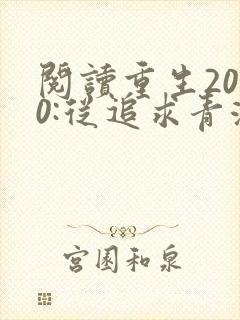 閱讀重生20
0:從追求青
宮園和泉